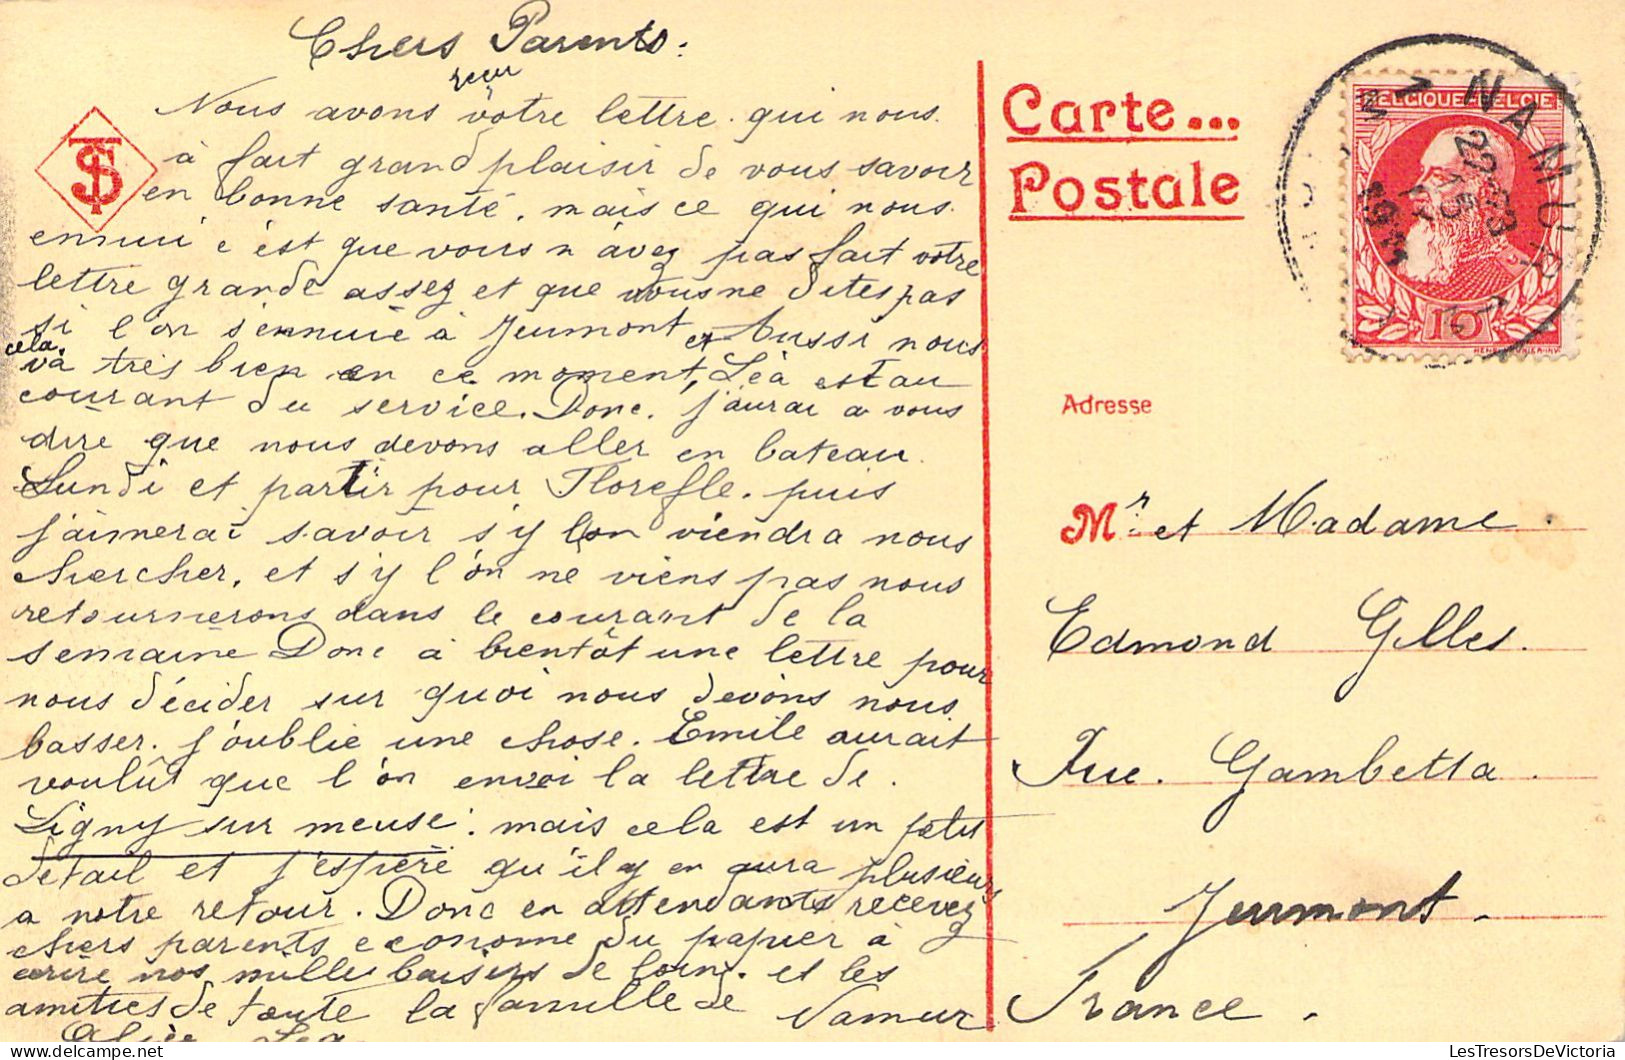 Chers Parents:
reçu
Nous avons votre lettre. qui nous
à fait grand plaisir de vous savoir
en bonne santé. mais ce qui nous
ennui c'est que vous n'avez pas fait votre
lettre grande assez et que vous ne dites pas
si l'on s'ennuie à Jeumont et Aussi nous
cela
va très bien en ce moment, Léa est au
courant du service. Donc. j'aurai a vous
dire que nous devons aller en bateau
Lundi et partir pour Floreffe. puis
j'aimerai savoir s'y l'on viendra nous
chercher, et s'y l'on ne viens pas nous
retournerons dans le courant de la
semaine Donc à bientôt une lettre pour
nous décider sur quoi nous devons nous
basser. j'oublie une chose. Emile aurait
voulût que l'on envoi la lettre de
Ligny sur meuse. mais cela est un petit
détail et j'espère qu'il y en aura plusieurs
a notre retour. Donc en attendants recevez
chers parents econome du papier à
écrire nos mille baisers de loin. et les
amitiés de toute la famille de Namur
Alice Léa
ST
Carte...
Postale
BELGIQUE-BELGIE
10
NAMUR
Adresse
Mr. et Madame
Edmond Gilles.
Rue. Gambetta.
Jeumont.
France.
delcampe.net
LesTresorsDeVictoria